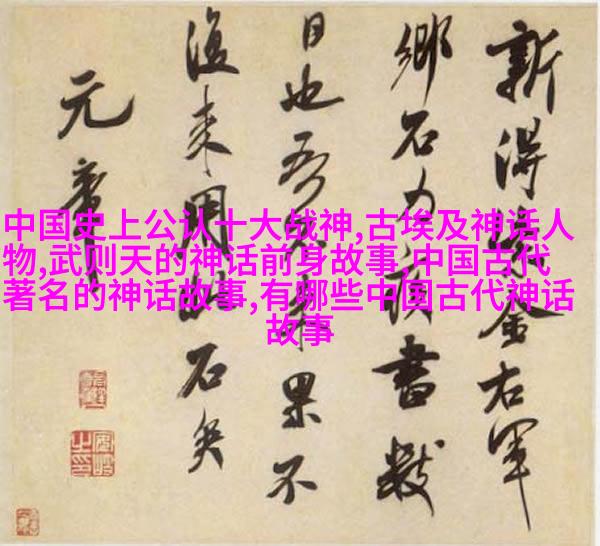 新得紫金右軍
鄉石力疾書數
日也吾果不
復來用此石矣
元章
中国史上公认十大战神,古埃及神话人
物,武则天的神话前身故事,中国古代
著名的神话故事,有哪些中国古代神话
故事